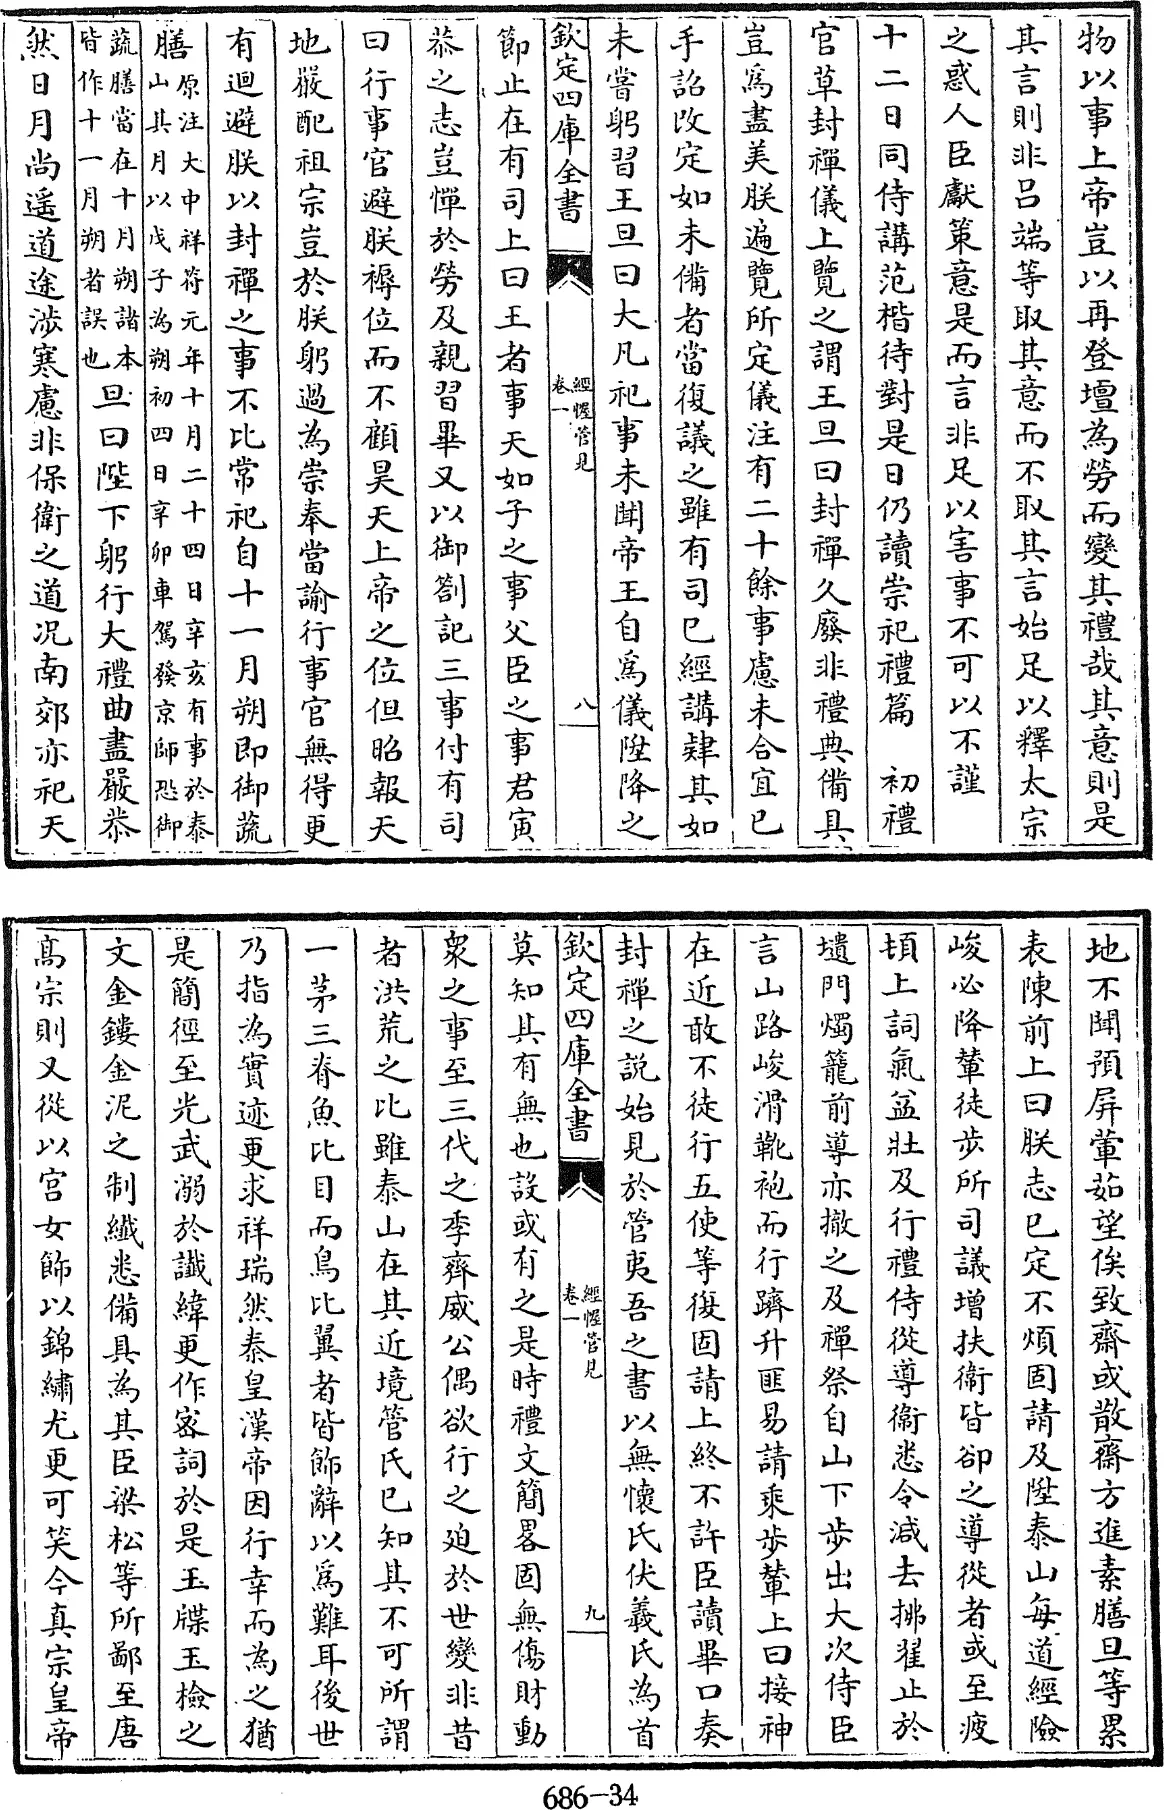 物以事上帝豈以再登壇為勞而變其禮哉其意則是
其言則非呂端等取其意而不取其言始足以釋太宗
之惑人臣獻策意是而言非足以害事不可以不謹
十二日同侍講范楷待對是日仍讀崇祀禮篇　初禮
官草封禪儀上覽之謂王旦曰封禪久廢非禮典備具
豈爲盡美朕遍覽所定儀注有二十餘事慮未合宜已
手詔改定如未備者當復議之雖有司已經講肄其如
未嘗躬習王旦曰大凡祀事未聞帝王自爲儀陞降之
欽定四庫全書
經幄管見
卷一
八
節止在有司上曰王者事天如子之事父臣之事君寅
恭之志豈憚於勞及親習畢又以御劄記三事付有司
曰行事官避朕褥位而不顧昊天上帝之位但昭報天
地嚴配祖宗豈於朕躬過為崇奉當諭行事官無得更
有迴避朕以封禪之事不比常祀自十一月朔即御蔬
膳
原注大中祥符元年十月二十四日辛亥有事於泰
山其月以戊子為朔初四日辛卯車駕發京師恐御
蔬膳當在十月朔諸本
皆作十一月朔者誤也
旦曰陛下躬行大禮曲盡嚴恭
然日月尚遥道途涉寒慮非保衛之道况南郊亦祀天
地不聞預屏葷茹望俟致齋或散齋方進素膳旦等累
表陳前上曰朕志已定不煩固請及陞泰山每道經險
峻必降輦徒步所司議增扶衛皆卻之導從者或至疲
頓上詞氣益壯及行禮侍從導衞悉令減去拂翟止於
壝門燭籠前導亦撤之及禪祭自山下步出大次侍臣
言山路峻滑靴袍而行躋升匪易請乘步輦上曰接神
在近敢不徒行五使等復固請上終不許臣讀畢口奏
封禪之說始見於管夷吾之書以無懷氏伏羲氏為首
欽定四庫全書
經幄管見
卷一
九
莫知其有無也設或有之是時禮文簡畧固無傷財動
衆之事至三代之季齊威公偶欲行之廹於世變非昔
者洪荒之比雖泰山在其近境管氏已知其不可所謂
一茅三脊魚比目而鳥比翼者皆飾辭以爲難耳後世
乃指為實迹更求祥瑞然秦皇漢帝因行幸而為之猶
是簡徑至光武溺於讖緯更作宻詞於是玉牒玉檢之
文金鏤金泥之制纖悉備具為其臣梁松等所鄙至唐
髙宗則又從以宮女飾以錦繡尤更可笑今真宗皇帝
686-34